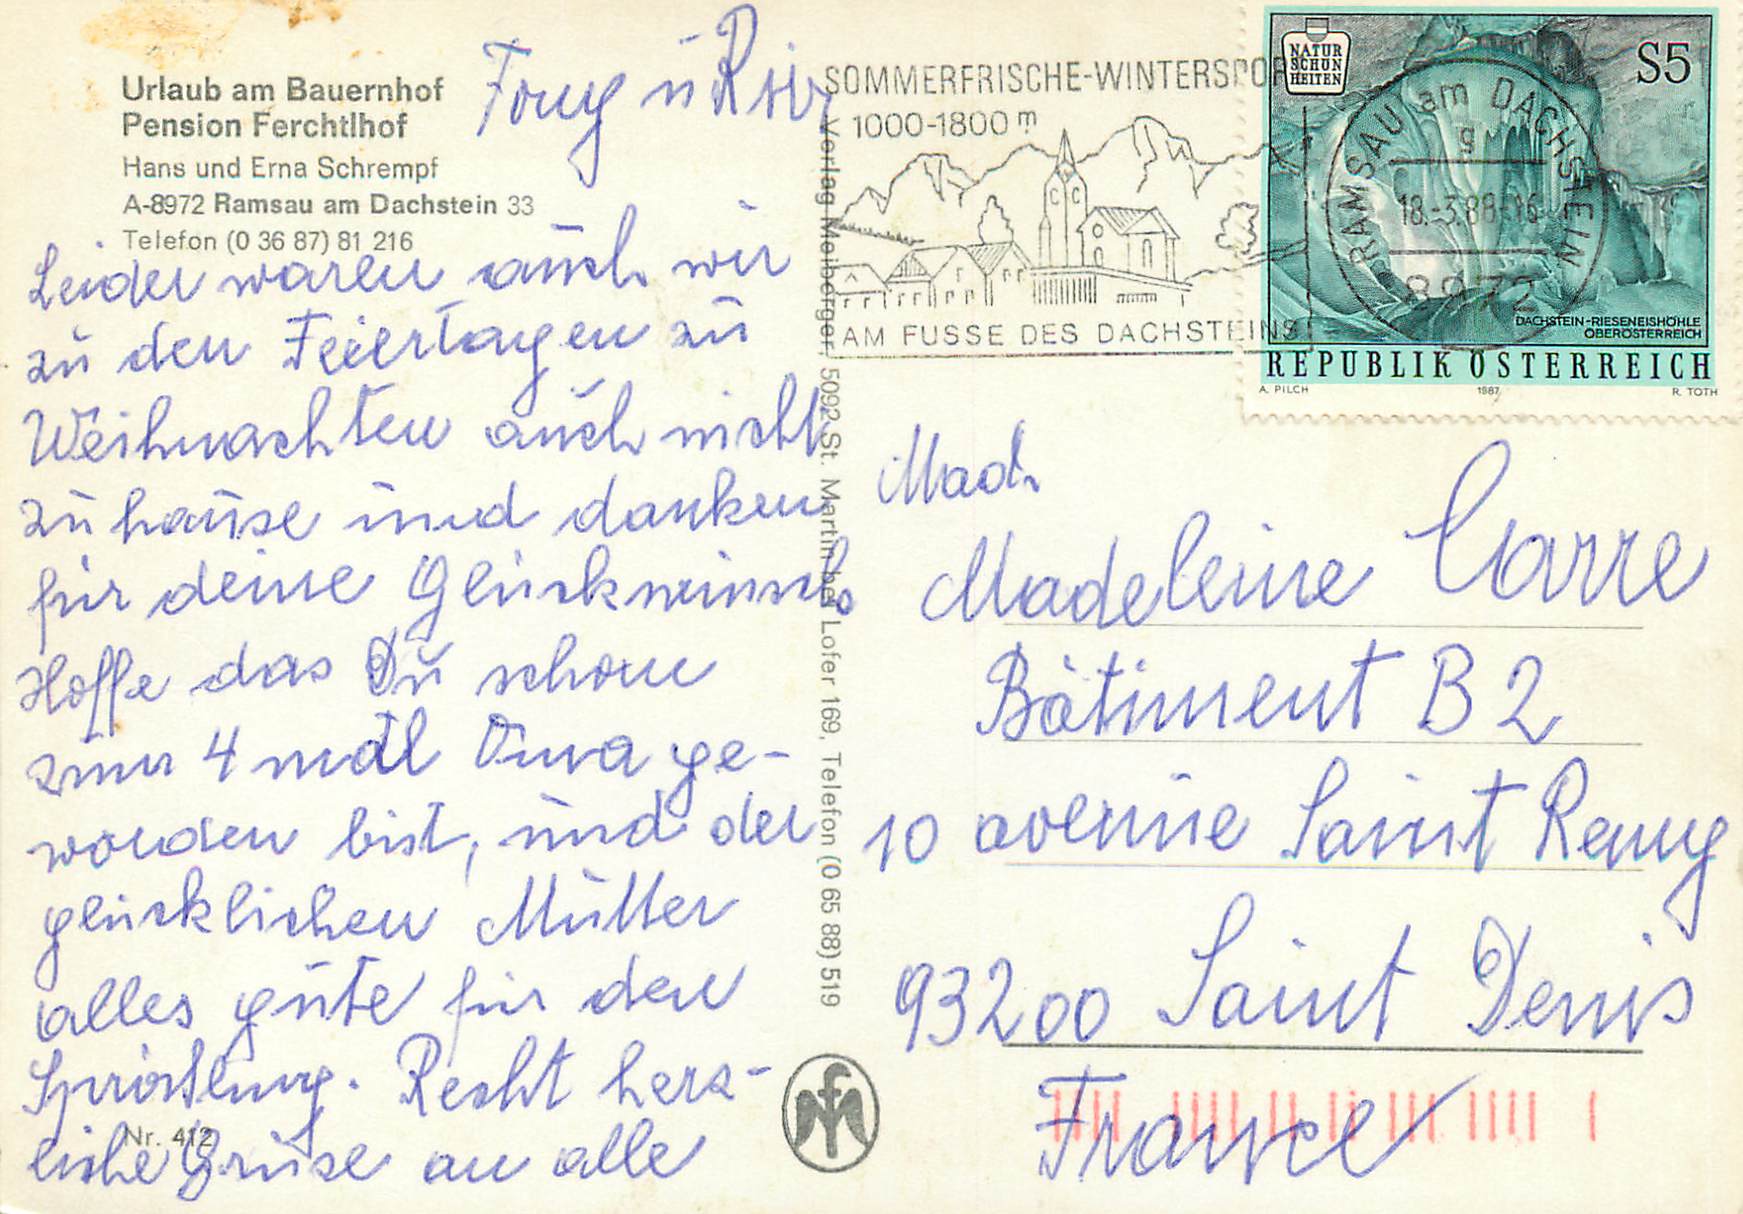 Urlaub am Bauernhof
Pension Ferchtlhof
Hans und Erna Schrempf
A-8972 Ramsau am Dachstein 33
Telefon (0 36 87) 81 216
Leider waren auch wir
zu den Feiertagen zu
Weihnachten auch nicht
zuhause und danken
für deine Glückwünsch
Hoffe das Du schon
zum 4 mal Oma ge-
worden bist, und der
glücklichen Mutter
alles gute für den
Sprössling. Recht herz-
liche Grüse an alle
Nr. 412
Verlag Meiberger, 5092 St. Martin bei Lofer 169, Telefon (0 65 88) 519
SOMMERFRISCHE-WINTERSPORT
1000-1800 m
AM FUSSE DES DACHSTEINS
RAMSAU am DACHSTEIN
g
18.-3.88-16
8972
NATUR
SCHÖN
HEITEN
S5
DACHSTEIN-RIESENEISHÖHLE
OBERÖSTERREICH
REPUBLIK ÖSTERREICH
A. PILCH 1987 R. TOTH
Mad.
Madeleine Carre
Bâtiment B 2
10 avenue Saint Remy
93200 Saint Denis
France